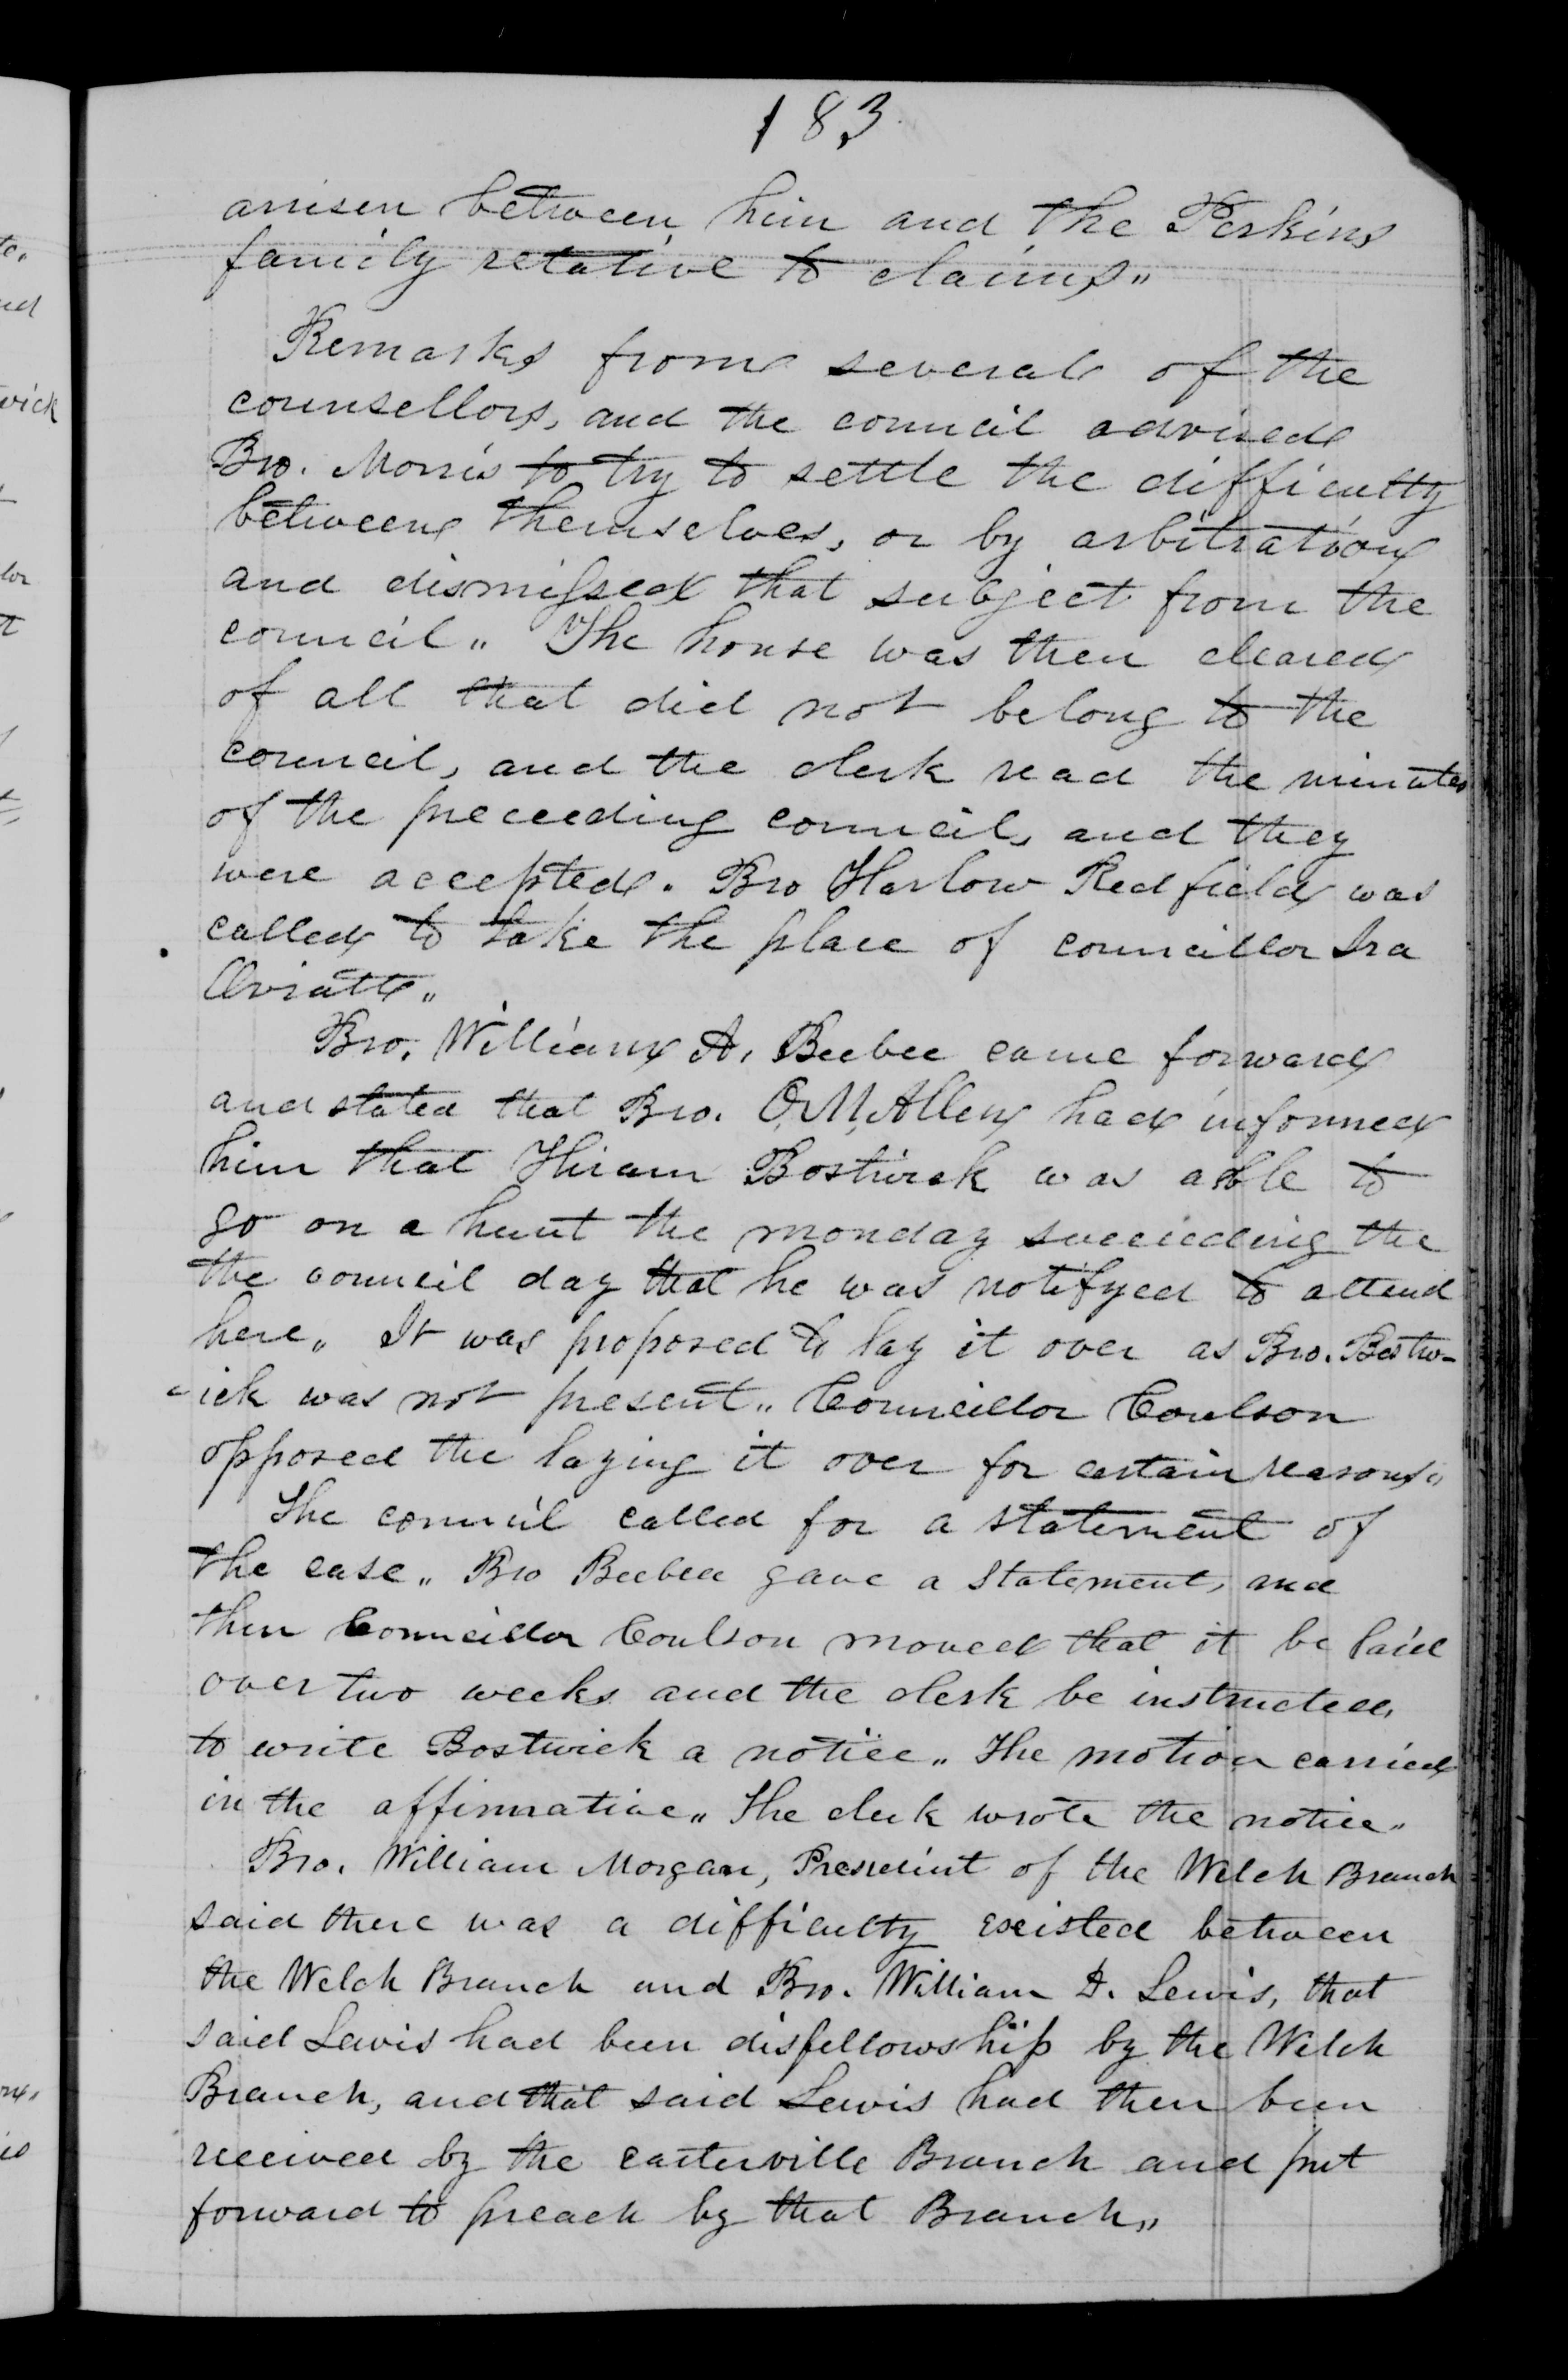 183
arrisen between him and the Perkins
family retative to claims„
Remarks from several of the
counsellors, and the council advised
Bro. Morris to try to settle the difficulty
between themselves, or by arbitration
and dismissed that subject from the
council„ The house was then cleared
of all that did not belong to the
council, and the clerk read the minutes
of the preceeding council, and they
were accepted. Bro Harlow Redfield was
called to take the place of councillor Ira
Oviatt„
Bro. William A. Beebee came forward
and stated that Bro. O. M. Allen had informed
him that Hiram Bostwick was able to
go on a hunt the monday succeeding the
the council day that he was notifyed to attend
here„ It was proposed to lay it over as Bro. Bostw-
-ick was not present„ Councillor Coulson
opposed the laying it over for certain reasons„
The council called for a statement of
the case„ Bro Beebee gave a statement, and
then Councillor Coulson moved that it be laid
over two weeks and the clerk be instructed,
to write Bostwick a notice„ The motion carried
in the affirmative„ The clerk wrote the notice„
Bro. William Morgan, President of the Welch Branch
said there was a difficulty existed between
the Welch Branch and Bro. William D. Lewis, that
said Lewis had been disfellowship by the Welch
Branch, and that said Lewis had then been
received by the carterville Branch and put
forward to preach by that Branch„
to.
wick